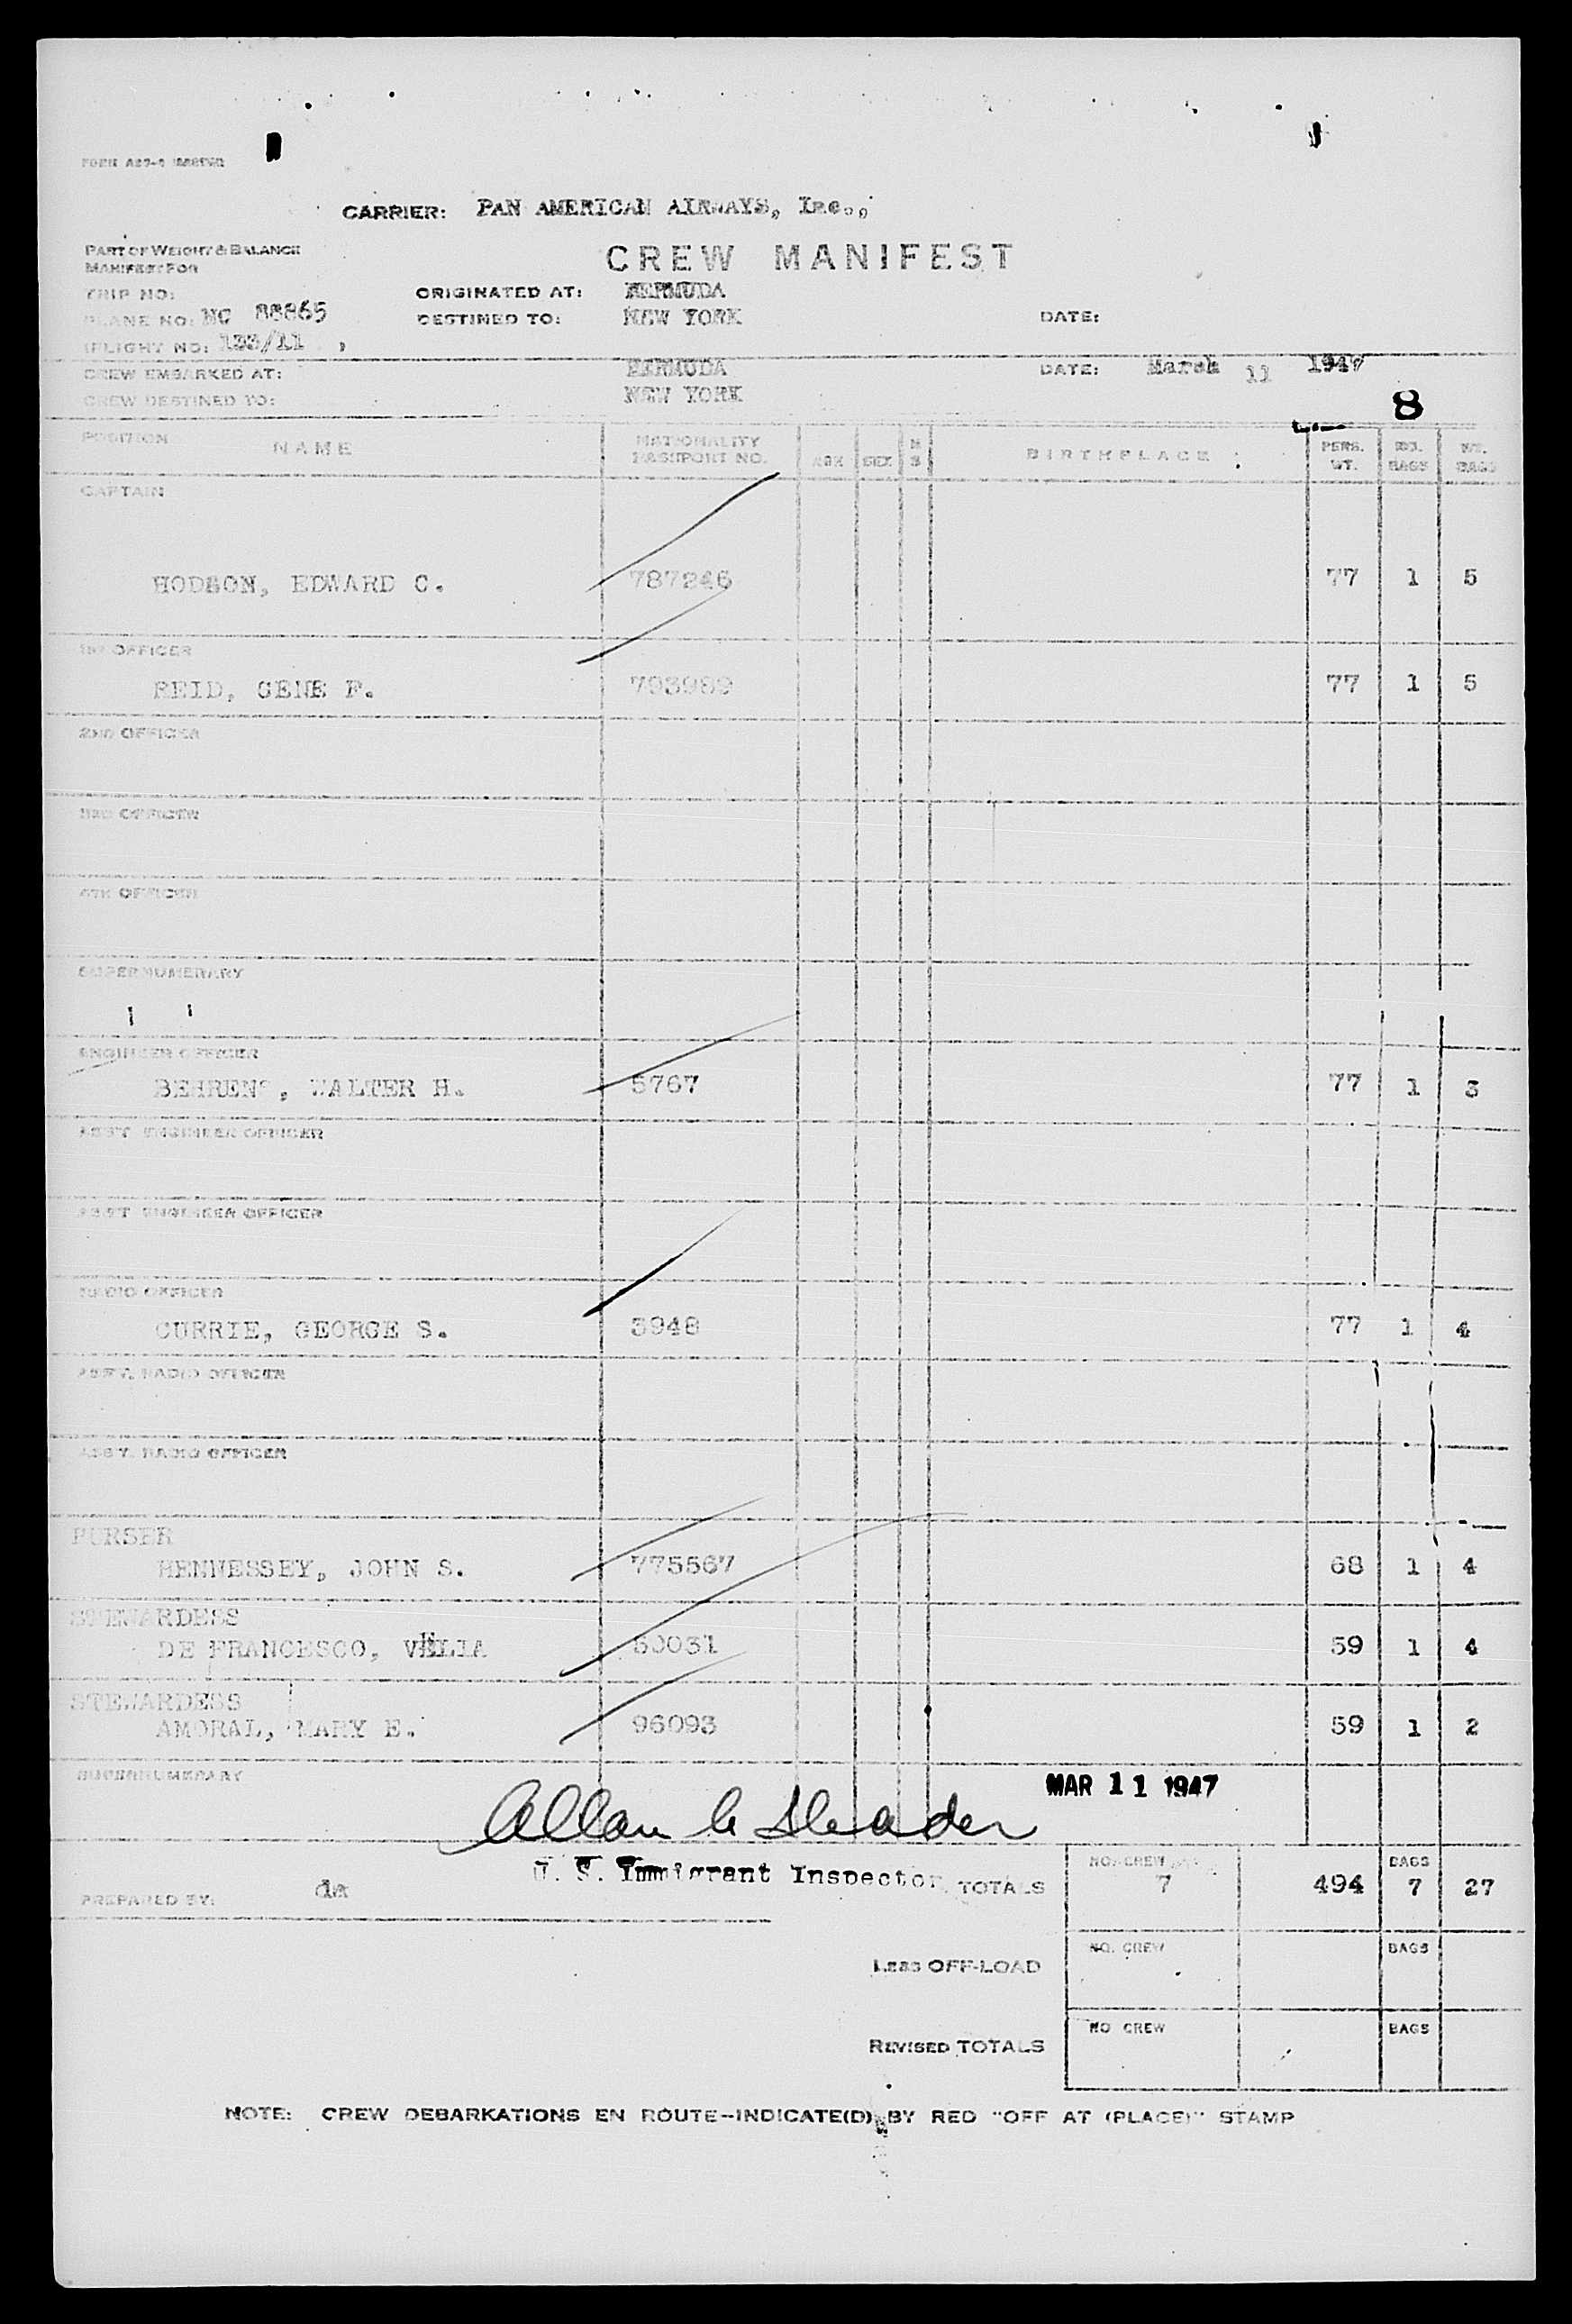 CARRIER: PAN AMERICAN AIRWAYS, Inc.,
CREW MANIFEST
PART OF WEIGHT & BALANCE
MANIFEST FOR
TRIP NO:
ORIGINATED AT: BERMUDA
PLANE NO: NC 88865
DESTINED TO: NEW YORK
DATE:
FLIGHT NO: 133/11 ,
CREW EMBARKED AT: BERMUDA
DATE: March 11 1947
CREW DESTINED TO: NEW YORK
8
POSITION NAME NATIONALITY PASSPORT NO. AGE SEX M S BIRTHPLACE : PERS. WT. NO. BAGS WT. BAGS
CAPTAIN
HODSON, EDWARD C. 787246 77 1 5
1ST OFFICER
REID, GENE F. 793989 77 1 5
2ND OFFICER
3RD OFFICER
4TH OFFICER
SUPERNUMERARY
ENGINEER OFFICER
BEHRENS, WALTER H. 5767 77 1 3
ASST ENGINEER OFFICER
ASST ENGINEER OFFICER
RADIO OFFICER
CURRIE, GEORGE S. 3948 77 1 4
ASST. RADIO OFFICER
ASST. RADIO OFFICER
PURSER
HENNESSEY, JOHN S. 775567 68 1 4
STEWARDESS
DE FRANCESCO, VELIA 50031 59 1 4
STEWARDESS
AMORAL, MARY E. 96093 59 1 2
SUPERNUMERARY
MAR 11 1947
Allan
U. S. Immigrant Inspector
PREPARED BY: da
TOTALS NO. CREW 7 494 BAGS 7 27
LESS OFF-LOAD NO. CREW BAGS
REVISED TOTALS NO CREW BAGS
NOTE: CREW DEBARKATIONS EN ROUTE--INDICATE(D) BY RED "OFF AT (PLACE)" STAMP